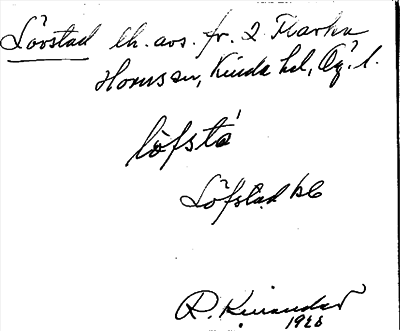 Lövstad lh. avs. fr. 2 Marken
Hornsen, Kinda hd, Ög. l.
löfsta
Löfstad hb
R. Kinander
1928